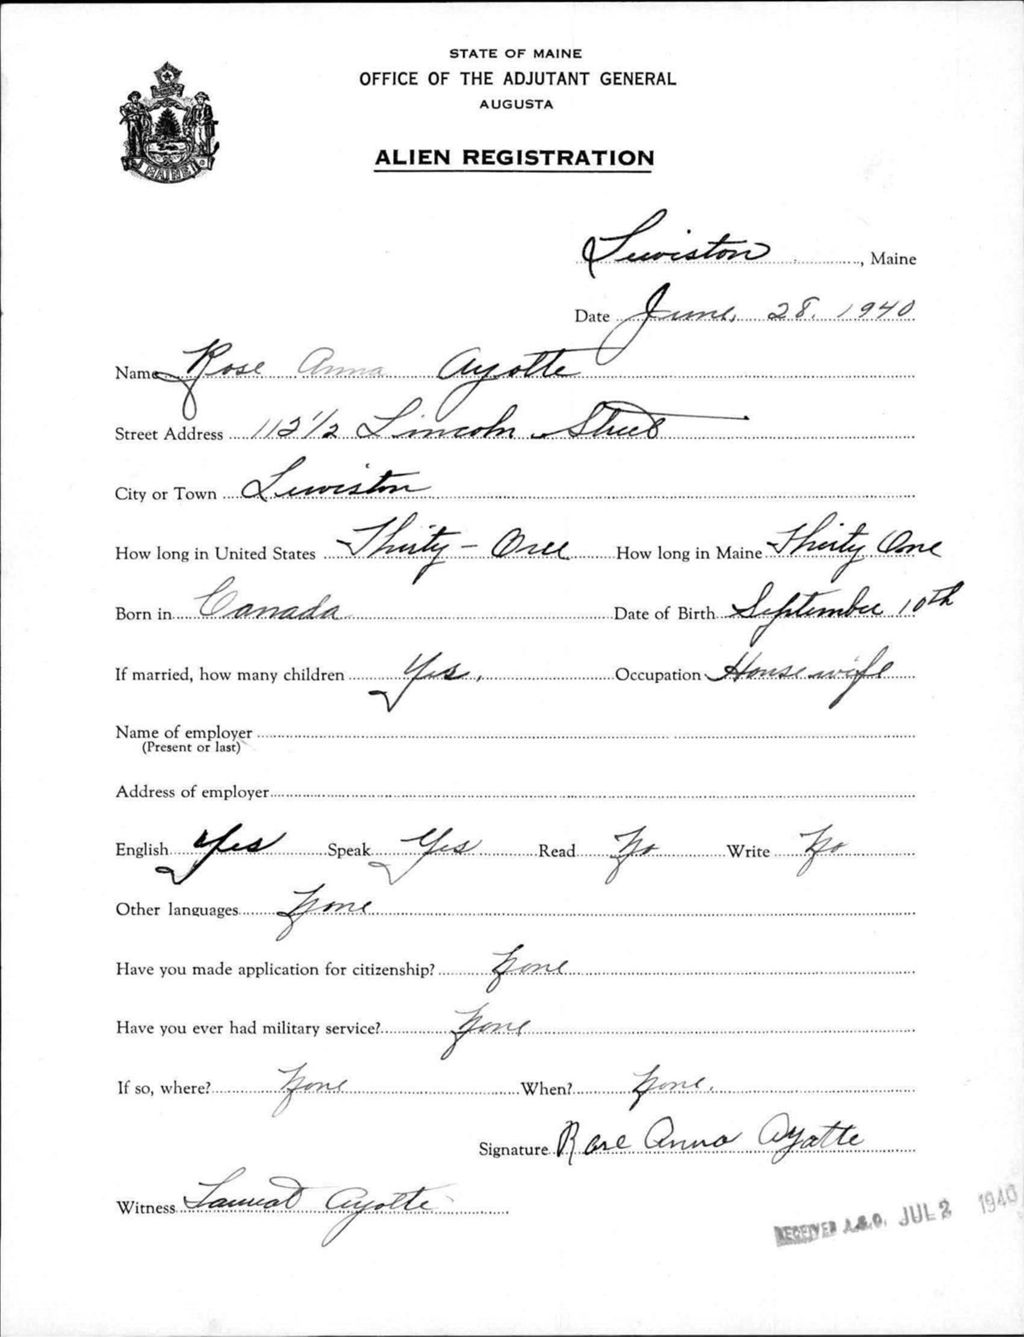 STATE OF MAINE
OFFICE OF THE ADJUTANT GENERAL
AUGUSTA
ALIEN REGISTRATION
MAINE
Lewiston, Maine
Date June, 28. 1940
Name Rose Anna Ayotte
Street Address 112 1/2 Lincoln Street
City or Town Lewiston
How long in United States Thirty-One How long in Maine Thirty One
Born in Canada Date of Birth September 10th
If married, how many children Yes. Occupation Housewife
Name of employer
(Present or last)
Address of employer
English Yes Speak Yes Read No Write No
Other languages None
Have you made application for citizenship? None
Have you ever had military service? None
If so, where? None When? None.
Signature Rose Anna Ayotte
Witness Ayotte
RECEIVED A.G.O. JUL 2 1940